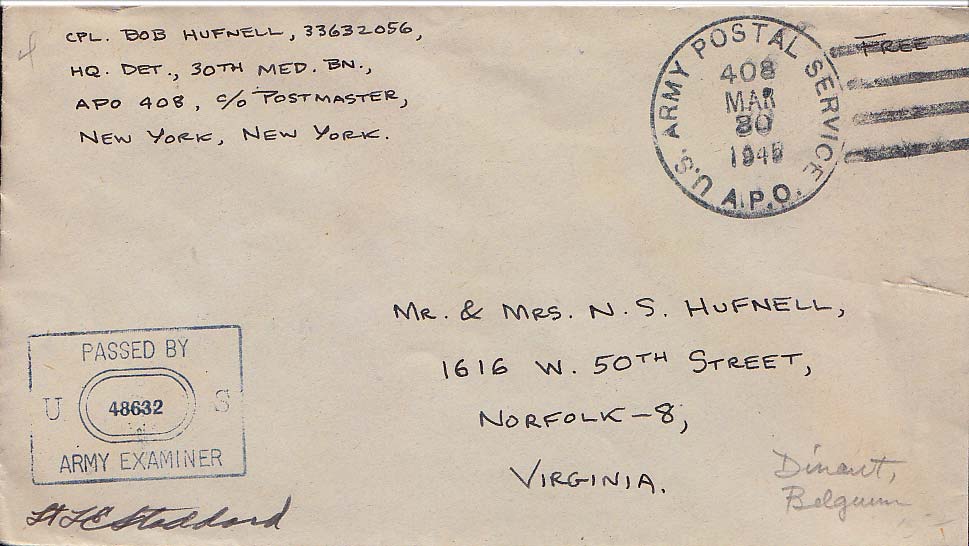 CPL. BOB HUFNELL, 33632056,
HQ. DET., 30TH MED. BN.,
APO 408, c/o POSTMASTER,
NEW YORK, NEW YORK.
FREE
U.S. ARMY POSTAL SERVICE
408
MAR
1945
A.P.O.
MR. & MRS. N. S. HUFNELL,
1616 W. 50TH STREET,
NORFOLK-8,
VIRGINIA.
PASSED BY
U 48632 S
ARMY EXAMINER
Dinant,
Belgium